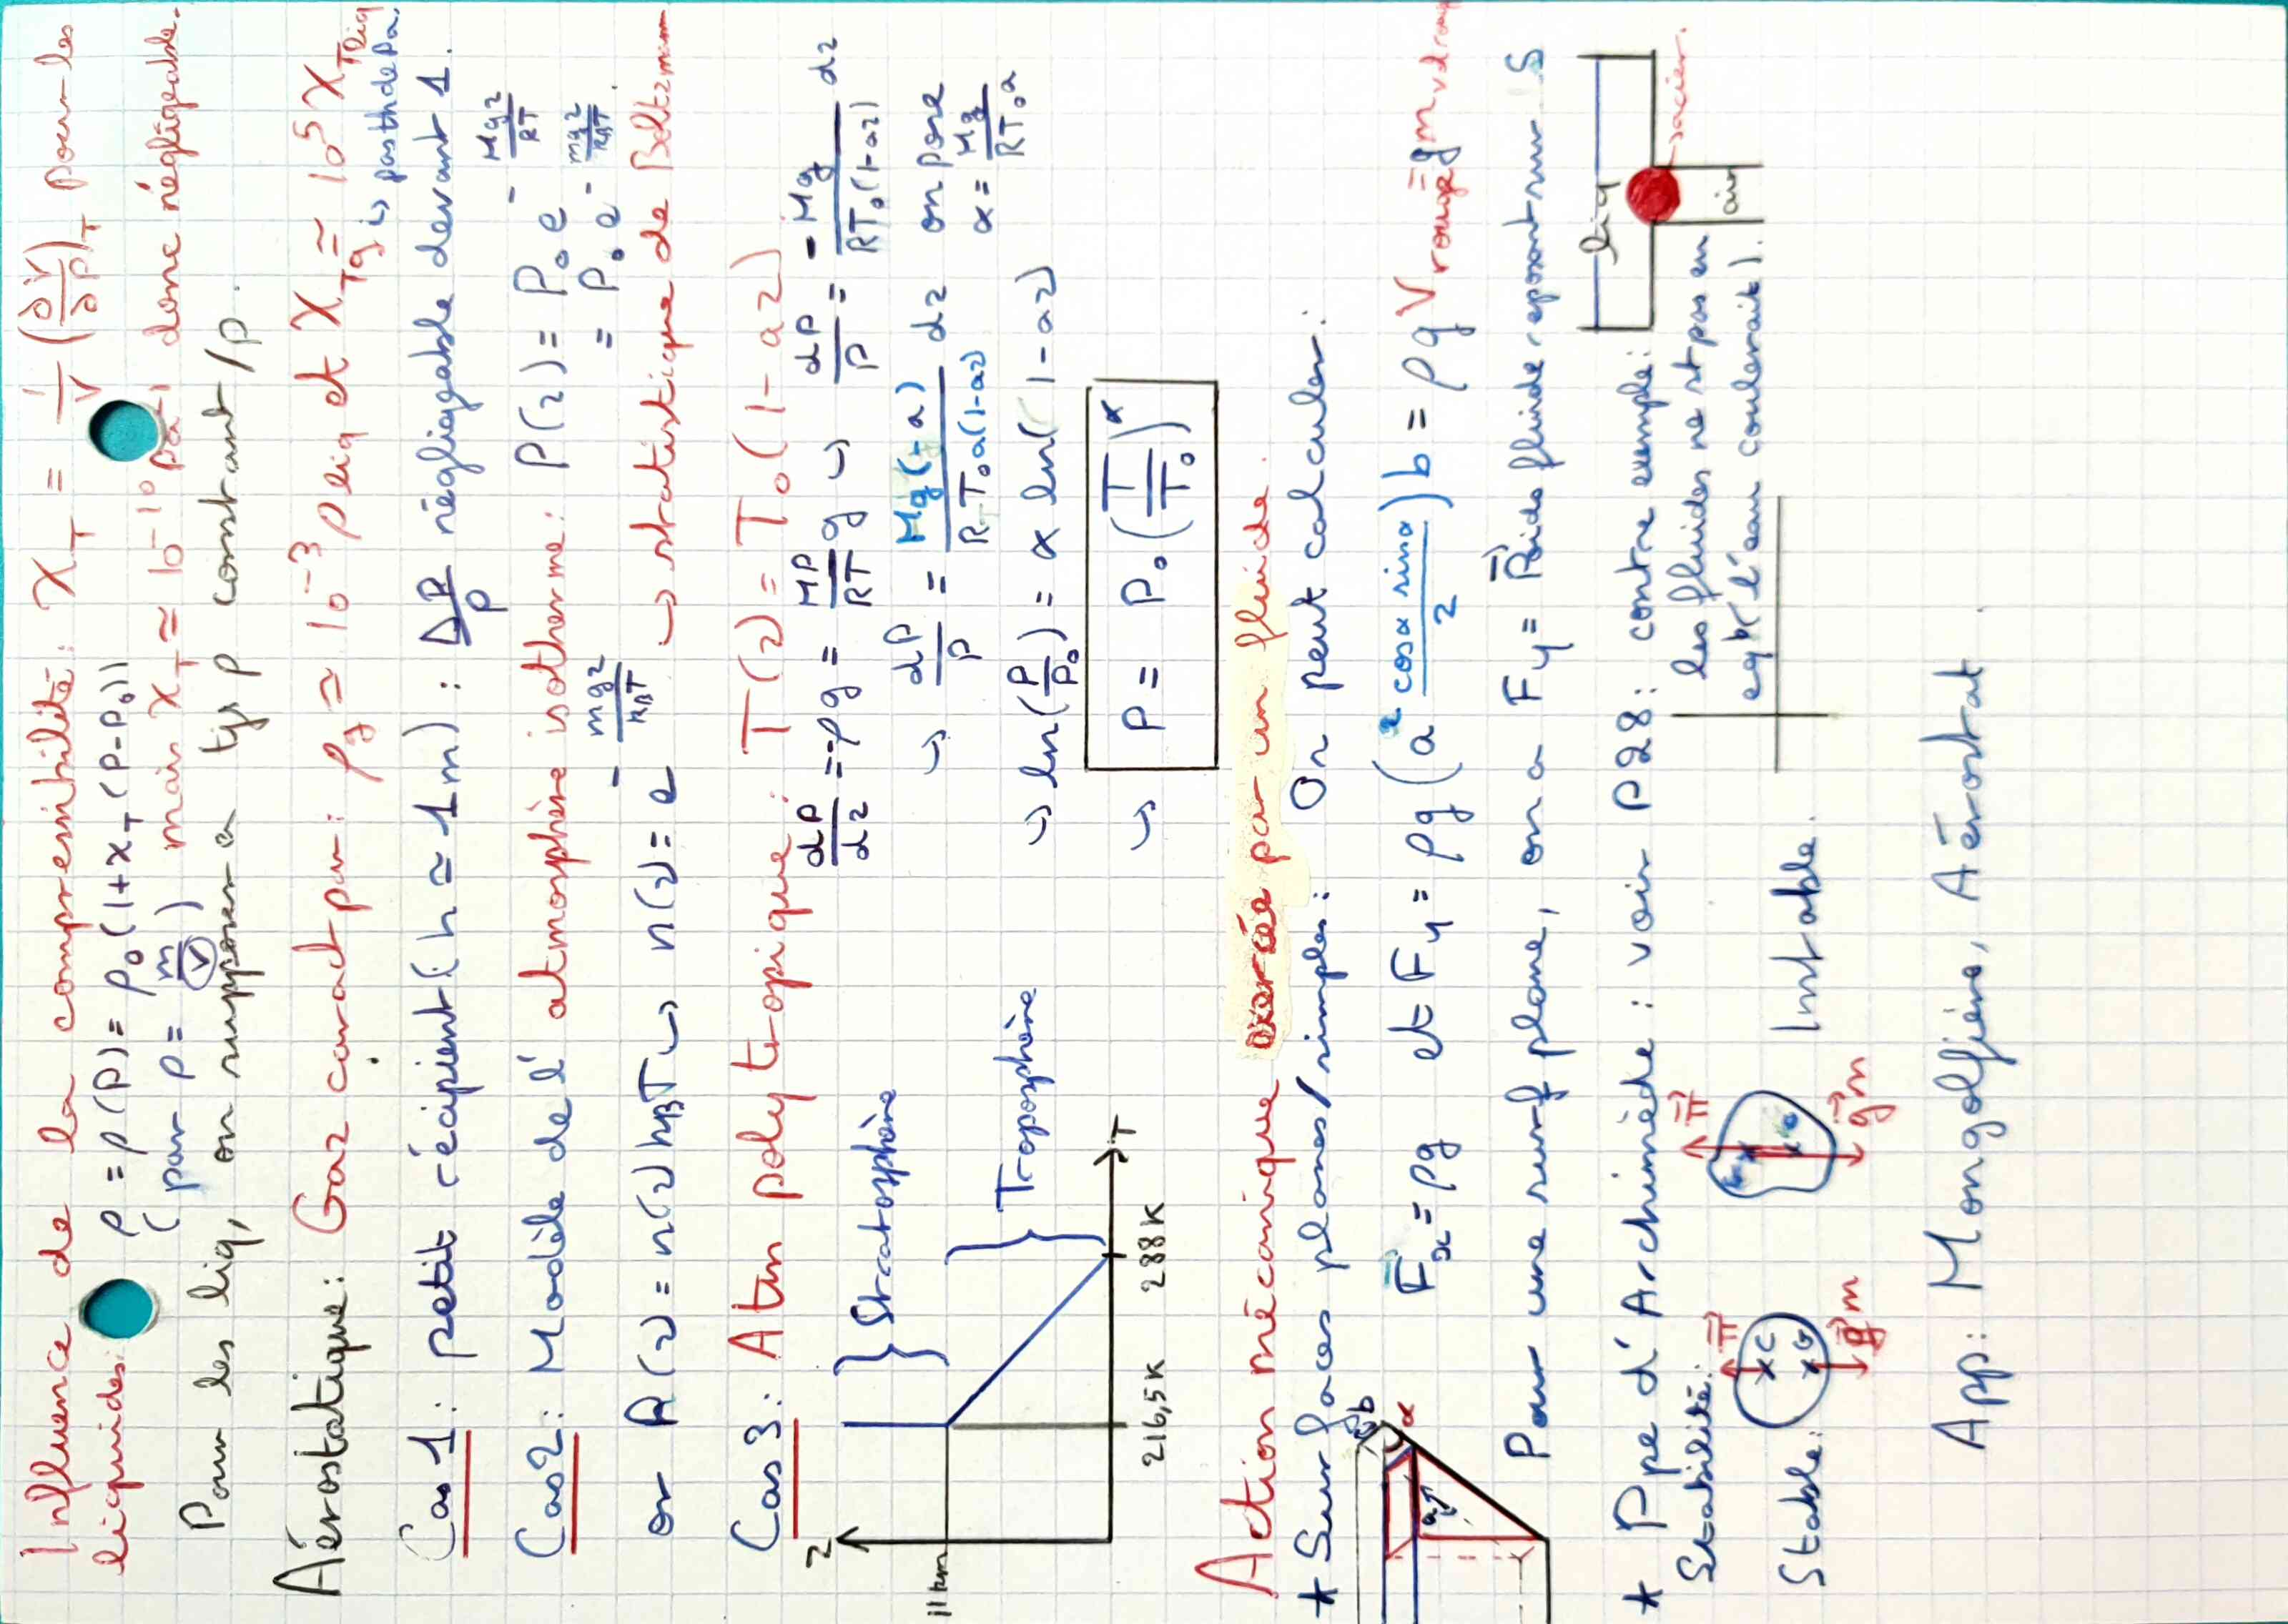 Influence de la compressibilité : χ_T = 1/V (∂V/∂P)_T pour les
liquides : ρ = ρ(P) = ρ₀(1+χ_T(P-P₀))
( par ρ = m/V ) mais χ_T ≃ 10⁻¹⁰ Pa⁻¹ donc négligeable.
Pour les liq, on supposera tjs ρ constant /P.
Aérostatique : Gaz caract par : ρ_g ≃ 10⁻³ ρ_liq et χ_Tg ≃ 10⁵ χ_Tliq
↪ pas th de Pa.
Cas 1 : petit récipient (h ≃ 1m) : ΔP/P négligeable devant 1.
Cas 2 : Modèle de l'atmosphère isotherme : P(z) = P₀ e^(-Mgz/RT)
= P₀ e^(-mgz/k_BT).
or P(z) = n(z) k_B T ↪ n(z) = e^(-mgz/k_BT) ↪ statistique de Boltzmann
Cas 3 : Atm polytropique : T(z) = T₀(1-az)
dP/dz = -ρg = MP/RT g ↪ dP/P = -Mg/RT₀(1-az) dz
↪ dP/P = Mg(-a)/RT₀a(1-az) dz on pose α = Mg/RT₀a
↪ ln(P/P₀) = α ln(1-az)
↪ P = P₀(T/T₀)^α
z
11 km
Stratosphère
Troposphère
216,5K 288K
T
Action mécanique exercée par un fluide.
* Surfaces planes/simples : On peut calculer :
b
α
a
F_x = ρg et F_y = ρg(a² cosα sinα/2)b = ρg V rouge = g m vdrouge
Pour une surf plane, on a F_y = Poids fluide reposant sur S
* Ppe d'Archimède : voir P28 : contre exemple :
les fluides ne st pas en
eq (l'eau coulerait).
liq
air
acier.
Stabilité :
Stable :
Π
C
G
gm
Π
gm
Instable.
App : Mongolfière, Aérostat.